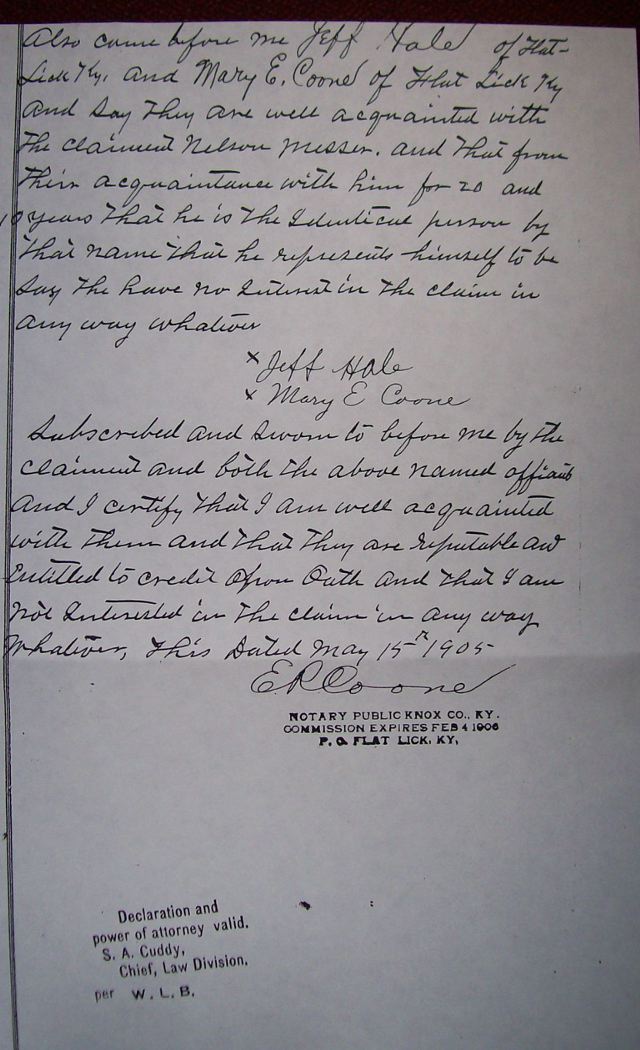 Also come before me Jeff Hale of Flat-
Lick Ky, and Mary E. Coone of Flat Lick Ky
And say they are well acquainted with
the claiment Nelson Messer. and that from
their acquaintance with him for 20 and
10 years that he is the Identical person by
that name that he represents himself to be
say the have no Interest in the claim in
any way whatever
x Jeff Hale
x Mary E Coone
Subscribed and Sworn to before me by the
claiment and both the above named affiants
And I certify that I am well acquainted
with them and that they are reputable and
Entitled to credit Upon Oath and that I am
not Interested in the claim in any way
Whatever, this Dated May 15th 1905
E P Coone
NOTARY PUBLIC KNOX CO., KY.
COMMISSION EXPIRES FEB 4 1906
P. O. FLAT LICK, KY,
Declaration and
power of attorney valid.
S. A. Cuddy,
Chief, Law Division.
per W. L. B.